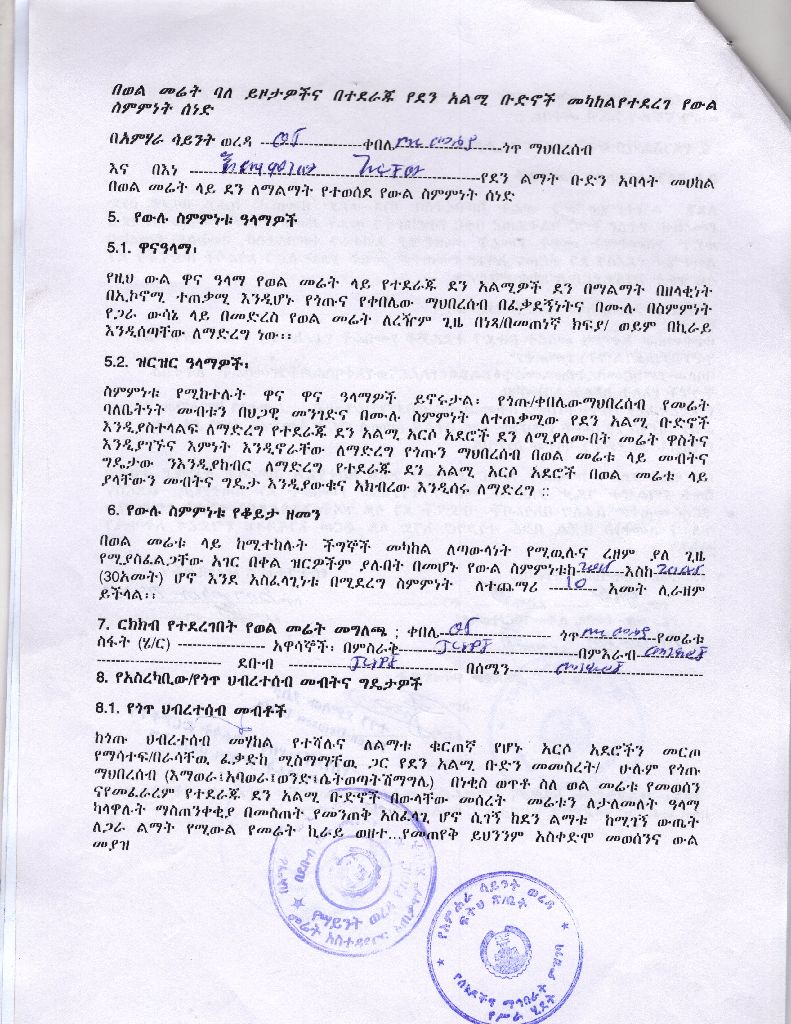 በወል መሬት ባለ ይዞታዎችና በተደራጁ የደን አልሚ ቡድኖች መካከልየተደረገ የውል
ስምምነት ሰነድ
በአምሃራ ሳይንት ወረዳ ---------------ቀበሌ------------ጎጥ ማህበረሰብ
እና በእነ ------------------------------------የደን ልማት ቡድን አባላት መሀከል
በወል መሬት ላይ ደን ለማልማት የተወሰደ የውል ስምምነት ሰነድ
5. የውሉ ስምምነቱ ዓላማዎች
5.1. ዋናዓላማ፡
የዚህ ውል ዋና ዓላማ የወል መሬት ላይ የተደራጁ ደን አልሚዎች ደን በማልማት በዘላቂነት
በኢኮኖሚ ተጠቃሚ እንዲሆኑ የጎጡና የቀበሌው ማህበረሰብ በፈቃደኝነትና በሙሉ በስምምነት
የጋራ ውሳኔ ላይ በመድረስ የወል መሬት ለረዥም ጊዜ በነጻ/በመጠነኛ ክፍያ/ ወይም በኪራይ
እንዲሰጣቸው ለማድረግ ነው፡፡
5.2. ዝርዝር ዓላማዎች፡
ስምምነቱ የሚከተሉት ዋና ዋና ዓላማዎች ይኖሩታል፡ የጎጡ/ቀበሌውማህበረሰብ የመሬት
ባለቤትነት መብቱን በህጋዊ መንገድና በሙሉ ስምምነት ለተጠቃሚው የደን አልሚ ቡድኖች
እንዲያስተላልፍ ለማድረግ የተደራጁ ደን አልሚ አርሶ አደሮች ደን ለሚያለሙበት መሬት ዋስትና
እንዲያገኙና እምነት እንዲኖራቸው ለማድረግ የጎጡን ማህበረሰብ በወል መሬቱ ላይ መብትና
ግዴታው ንእንዲያከብር ለማድረግ የተደራጁ ደን አልሚ አርሶ አደሮች በወል መሬቱ ላይ
ያላቸውን መብትና ግዴታ እንዲያውቁና አክብረው እንዲሰሩ ለማድረግ ፡፡
6. የውሉ ስምምነቱ የቆይታ ዘመን
በወል መሬቱ ላይ ከሚተከሉት ችግኞች መካከል ለጣውላነት የሚዉሉና ረዘም ያለ ጊዜ
የሚያስፈልጋቸው አገር በቀል ዝርዎችም ያሉበት በመሆኑ የውል ስምምነቱከ-------እስከ-------
(30አመት) ሆኖ እንደ አስፈላጊነቱ በሚደረግ ስምምነት ለተጨማሪ ---10--- አመት ሊራዘም
ይችላል፡፡
7. ርክክብ የተደረገበት የወል መሬት መግለጫ ; ቀበሌ--------------- ጎጥ----------የመሬቱ
ስፋት (ሄ/ር) ---------------- አዋሳኞች፡ በምስራቅ--------------------በምእራብ----------
---------------------- ደቡብ --------------------- በሰሜን--------------------
8. የአስረካቢው/የጎጥ ህብረተሰብ መብትና ግዴታዎች
8.1. የጎጥ ህብረተሰብ መብቶች
ከጎጡ ህብረተሰብ መሃከል የተሻሉና ለልማቱ ቁርጠኛ የሆኑ አርሶ አደሮችን መርጦ
የማሳተፍ/በራሳቸዉ ፈቃድከ ሚስማማቸዉ ጋር የደን አልሚ ቡድን መመስረት/ ሁሉም የጎጡ
ማህበረሰብ (እማወራ፤አባወራ፤ወንድ፤ሴትወጣትሽማግሌ) በነቂስ ወጥቶ ስለ ወል መሬቱ የመወሰን
ናየመፈራረም የተደራጁ ደን አልሚ ቡድኖች በውላቸው መሰረት መሬቱን ለታለመለት ዓላማ
ካላዋሉት ማስጠንቀቂያ በመስጠት የመንጠቅ አስፈላጊ ሆኖ ሲገኝ ከደን ልማቱ ከሚገኝ ውጤት
ለጋራ ልማት የሚውል የመሬት ኪራይ ወዘተ...የመጠየቅ ይህንንም አስቀድሞ መወሰንና ውል
መያዝ
የአምሐራ ሳይንት ወረዳ
ፍትህ ጽ/ቤት